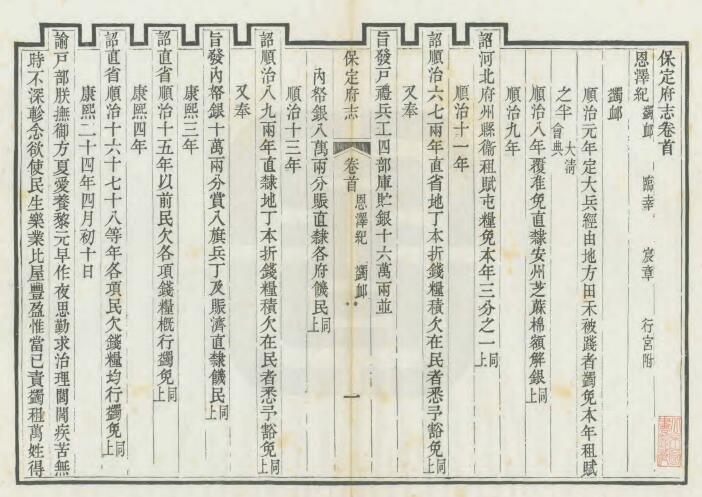 保定府志卷首
恩澤紀 蠲䘏 臨幸 宸章 行宮附
蠲䘏
順治元年定大兵經由地方田禾被踐者蠲免本年租賦
之半大清會典
順治八年覆准免直隸安州芝蔴棉額解銀同上
順治九年
詔河北府州縣衞租賦屯糧免本年三分之一同上
順治十一年
詔順治六七兩年直省地丁本折錢糧積欠在民者悉予豁免同上
又奉
旨發戸禮兵工四部庫貯銀十六萬兩並
保定府志 卷首 恩澤紀 蠲䘏 一
內帑銀八萬兩分賑直隸各府饑民同上
順治十三年
詔順治八九兩年直隸地丁本折錢糧積欠在民者悉予豁免同上
又奉
旨發內帑銀十萬兩分賞八旗兵丁及賑濟直隸饑民同上
康熙三年
詔直省順治十五年以前民欠各項錢糧槪行蠲免同上
康熙四年
詔直省順治十六十七十八等年各項民欠錢糧均行蠲免同上
康熙二十四年四月初十日
諭戸部朕撫御方夏愛養黎元早作夜思勤求治理閭閻疾苦無
時不深軫念欲使民生樂業比屋豐盈惟當已責蠲租萬姓得